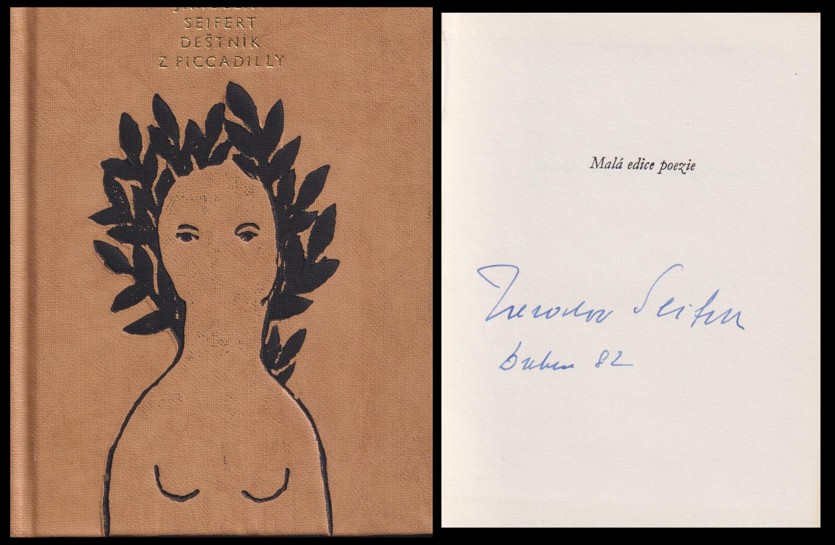 SEIFERT
DEŠTNÍK
Z PICCADILLY
Malá edice poezie
Jaroslav Seifert
82